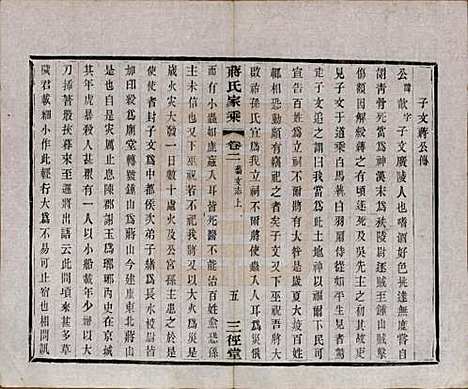 子文蔣公傳
公諱歆字子文廣陵人也嗜酒好色挑達無度嘗自
謂青骨死當為神漢末為秣陵尉逐賊至鍾山賊擊
傷額因解綬縛之有頃遂死及吳先主之初其故吏
見子文于道乘白馬執白羽扇侍從如平生見者驚
走子文追之謂曰我當為此土地神以福爾下民可
宣告百姓為我立祠不爾將有大咎是歲夏大疫百姓
輒恐動頗有竊祀之者矣子文又下巫祝吾將大啟
祐孫氏宜為我立祠不爾將使蟲入人耳為災俄
蔣氏家乘
卷二
舊支志上
五
三徑堂
而小蟲如鹿蝱入耳皆死醫不能治百姓愈恐
孫主未之信也又下巫祝若不祀我將又以大火為災是
歲火災大發一日數十處火及公宮孫主患之於
使使者封子文為中都侯次弟子緒為長水校尉
加印綬為廟堂轉號鍾山為蔣山今建康東北蔣山
是也自是災厲止息陳郡謝玉為瑯琊內史在京城
其年虎暴殺人甚眾有一人以小船載年少婦以大
刀插著船挾暮來至邏將出語云此間頃來甚多草
穢君載細小作此輕行大為不易可止宿也相問訊